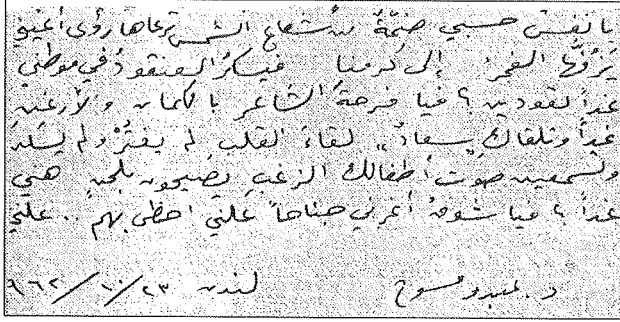 يا نفس حسبي ضمّةٌ من شعاع الشمس ترعاها رؤى أعيني
يَزُفّها الفجر إلى كرمنا فيسكر العنقود في موطني
غداً تعودين؟ فيا فرحة الشاعر بالكمان والأرغن
غداً وتلقاك "سعاد" لقاءَ القلب لم يفترْ ولم يسكن
وتسمعين صوت أطفالك الزغب يصيحون بلحن هني
غداً؟ فيا شوق أعرني جناحاً علّني احظى بهم .. علني
د. عبده مسوح لندن ٢٣/١٠/٩٦٢